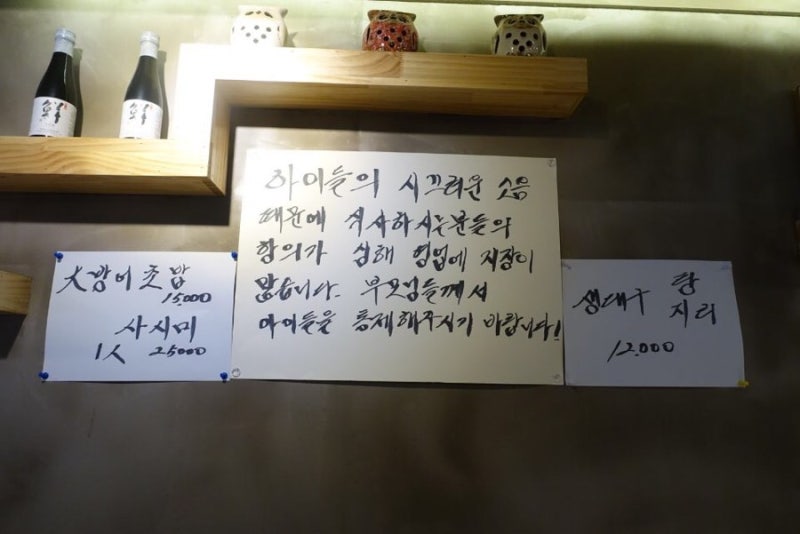 大방어초밥
15000
사시미
1人 25000
아이들의 시끄러운 소음
때문에 식사하시는분들의
항의가 심해 영업에 지장이
많습니다. 부모님들께서
아이들을 통제해주시기 바랍니다!
생대구 탕
지리
12.000